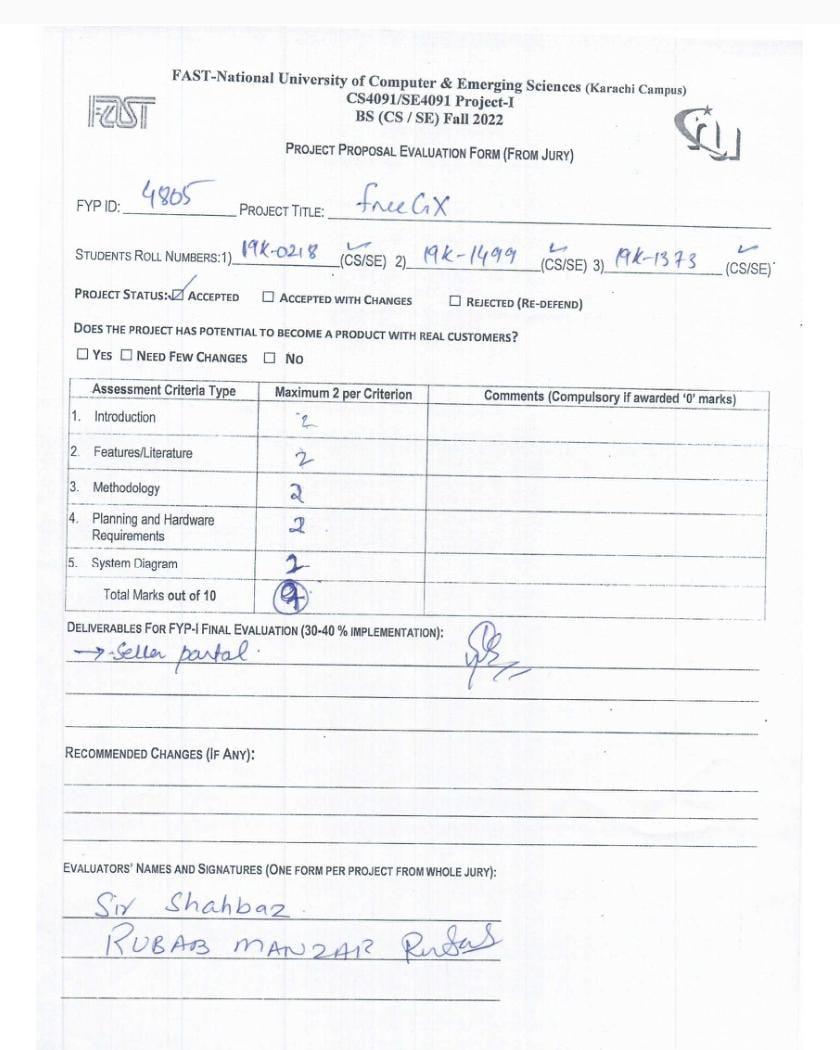 FAST-National University of Computer & Emerging Sciences (Karachi Campus)
CS4091/SE4091 Project-I
BS (CS / SE) Fall 2022
FAST
PROJECT PROPOSAL EVALUATION FORM (FROM JURY)
FYP ID: 4805 PROJECT TITLE: freeGX
STUDENTS ROLL NUMBERS:1) 19K-0218 (CS/SE) 2) 19K-1499 (CS/SE) 3) 19K-1373 (CS/SE)
PROJECT STATUS: ☑ ACCEPTED ☐ ACCEPTED WITH CHANGES ☐ REJECTED (RE-DEFEND)
DOES THE PROJECT HAS POTENTIAL TO BECOME A PRODUCT WITH REAL CUSTOMERS?
☐ YES ☐ NEED FEW CHANGES ☐ NO
Assessment Criteria Type Maximum 2 per Criterion Comments (Compulsory if awarded '0' marks)
1. Introduction 2
2. Features/Literature 2
3. Methodology 2
4. Planning and Hardware 2
Requirements
5. System Diagram 2
Total Marks out of 10
DELIVERABLES FOR FYP-I FINAL EVALUATION (30-40 % IMPLEMENTATION):
→ Seller portal.
RECOMMENDED CHANGES (IF ANY):
EVALUATORS' NAMES AND SIGNATURES (ONE FORM PER PROJECT FROM WHOLE JURY):
Sir Shahbaz
RUBAB MANZAR Rubab